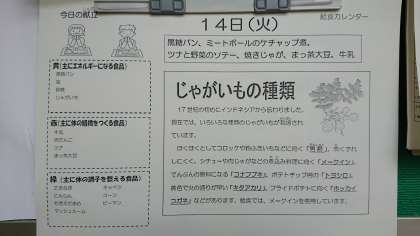 今日の献立
給食カレンダー
14日(火)
黒糖パン、ミートボールのケチャップ煮、
ツナと野菜のソテー、焼きじゃが、まっ茶大豆、牛乳
黄(主にエネルギーになる食品)
黒糖パン
油
砂糖
じゃがいも
赤(主に体の組織をつくる食品)
牛乳
肉だんご
ツナ
まっ茶大豆
緑(主に体の調子を整える食品)
たまねぎ キャベツ
にんじん コーン
ピーマン
マッシュルーム
じゃがいもの種類
17世紀の初めにインドネシアから伝わりました。
現在では、いろいろな種類のじゃがいもが栽培され
ています。
ほくほくとしてコロッケや粉ふきいもなどに向く「男爵」、煮くずれ
しにくく、シチューや肉じゃがなどの煮込み料理に向く「メークイン」、
でんぷんの原料になる「コナフブキ」、ポテトチップ用の「トヨシロ」、
黄色で火の通りが早い「キタアカリ」、フライドポテトに向く「ホッカイ
コガネ」などがあります。給食では、メークインを使用しています。